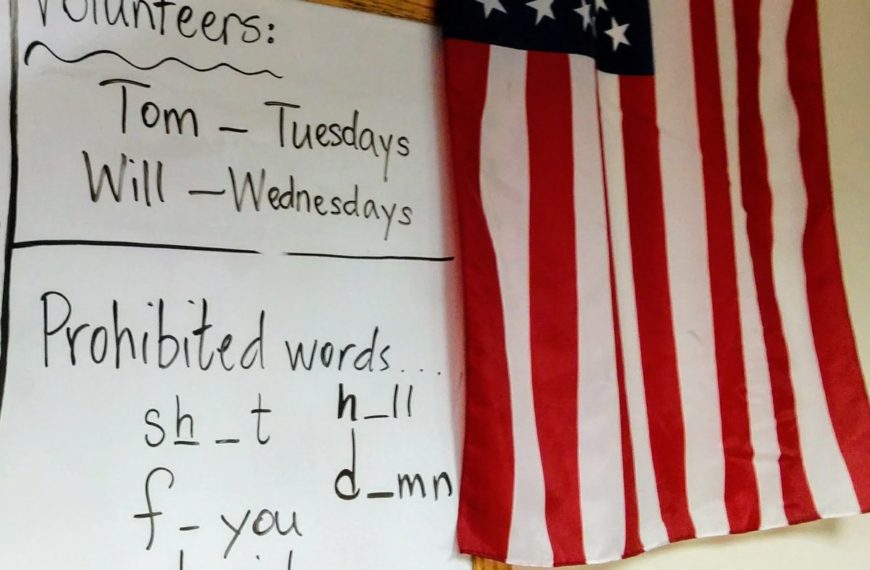 Volunteers:
Tom - Tuesdays
Will - Wednesdays
Prohibited words...
sh_t h_ll
f - you d_mn